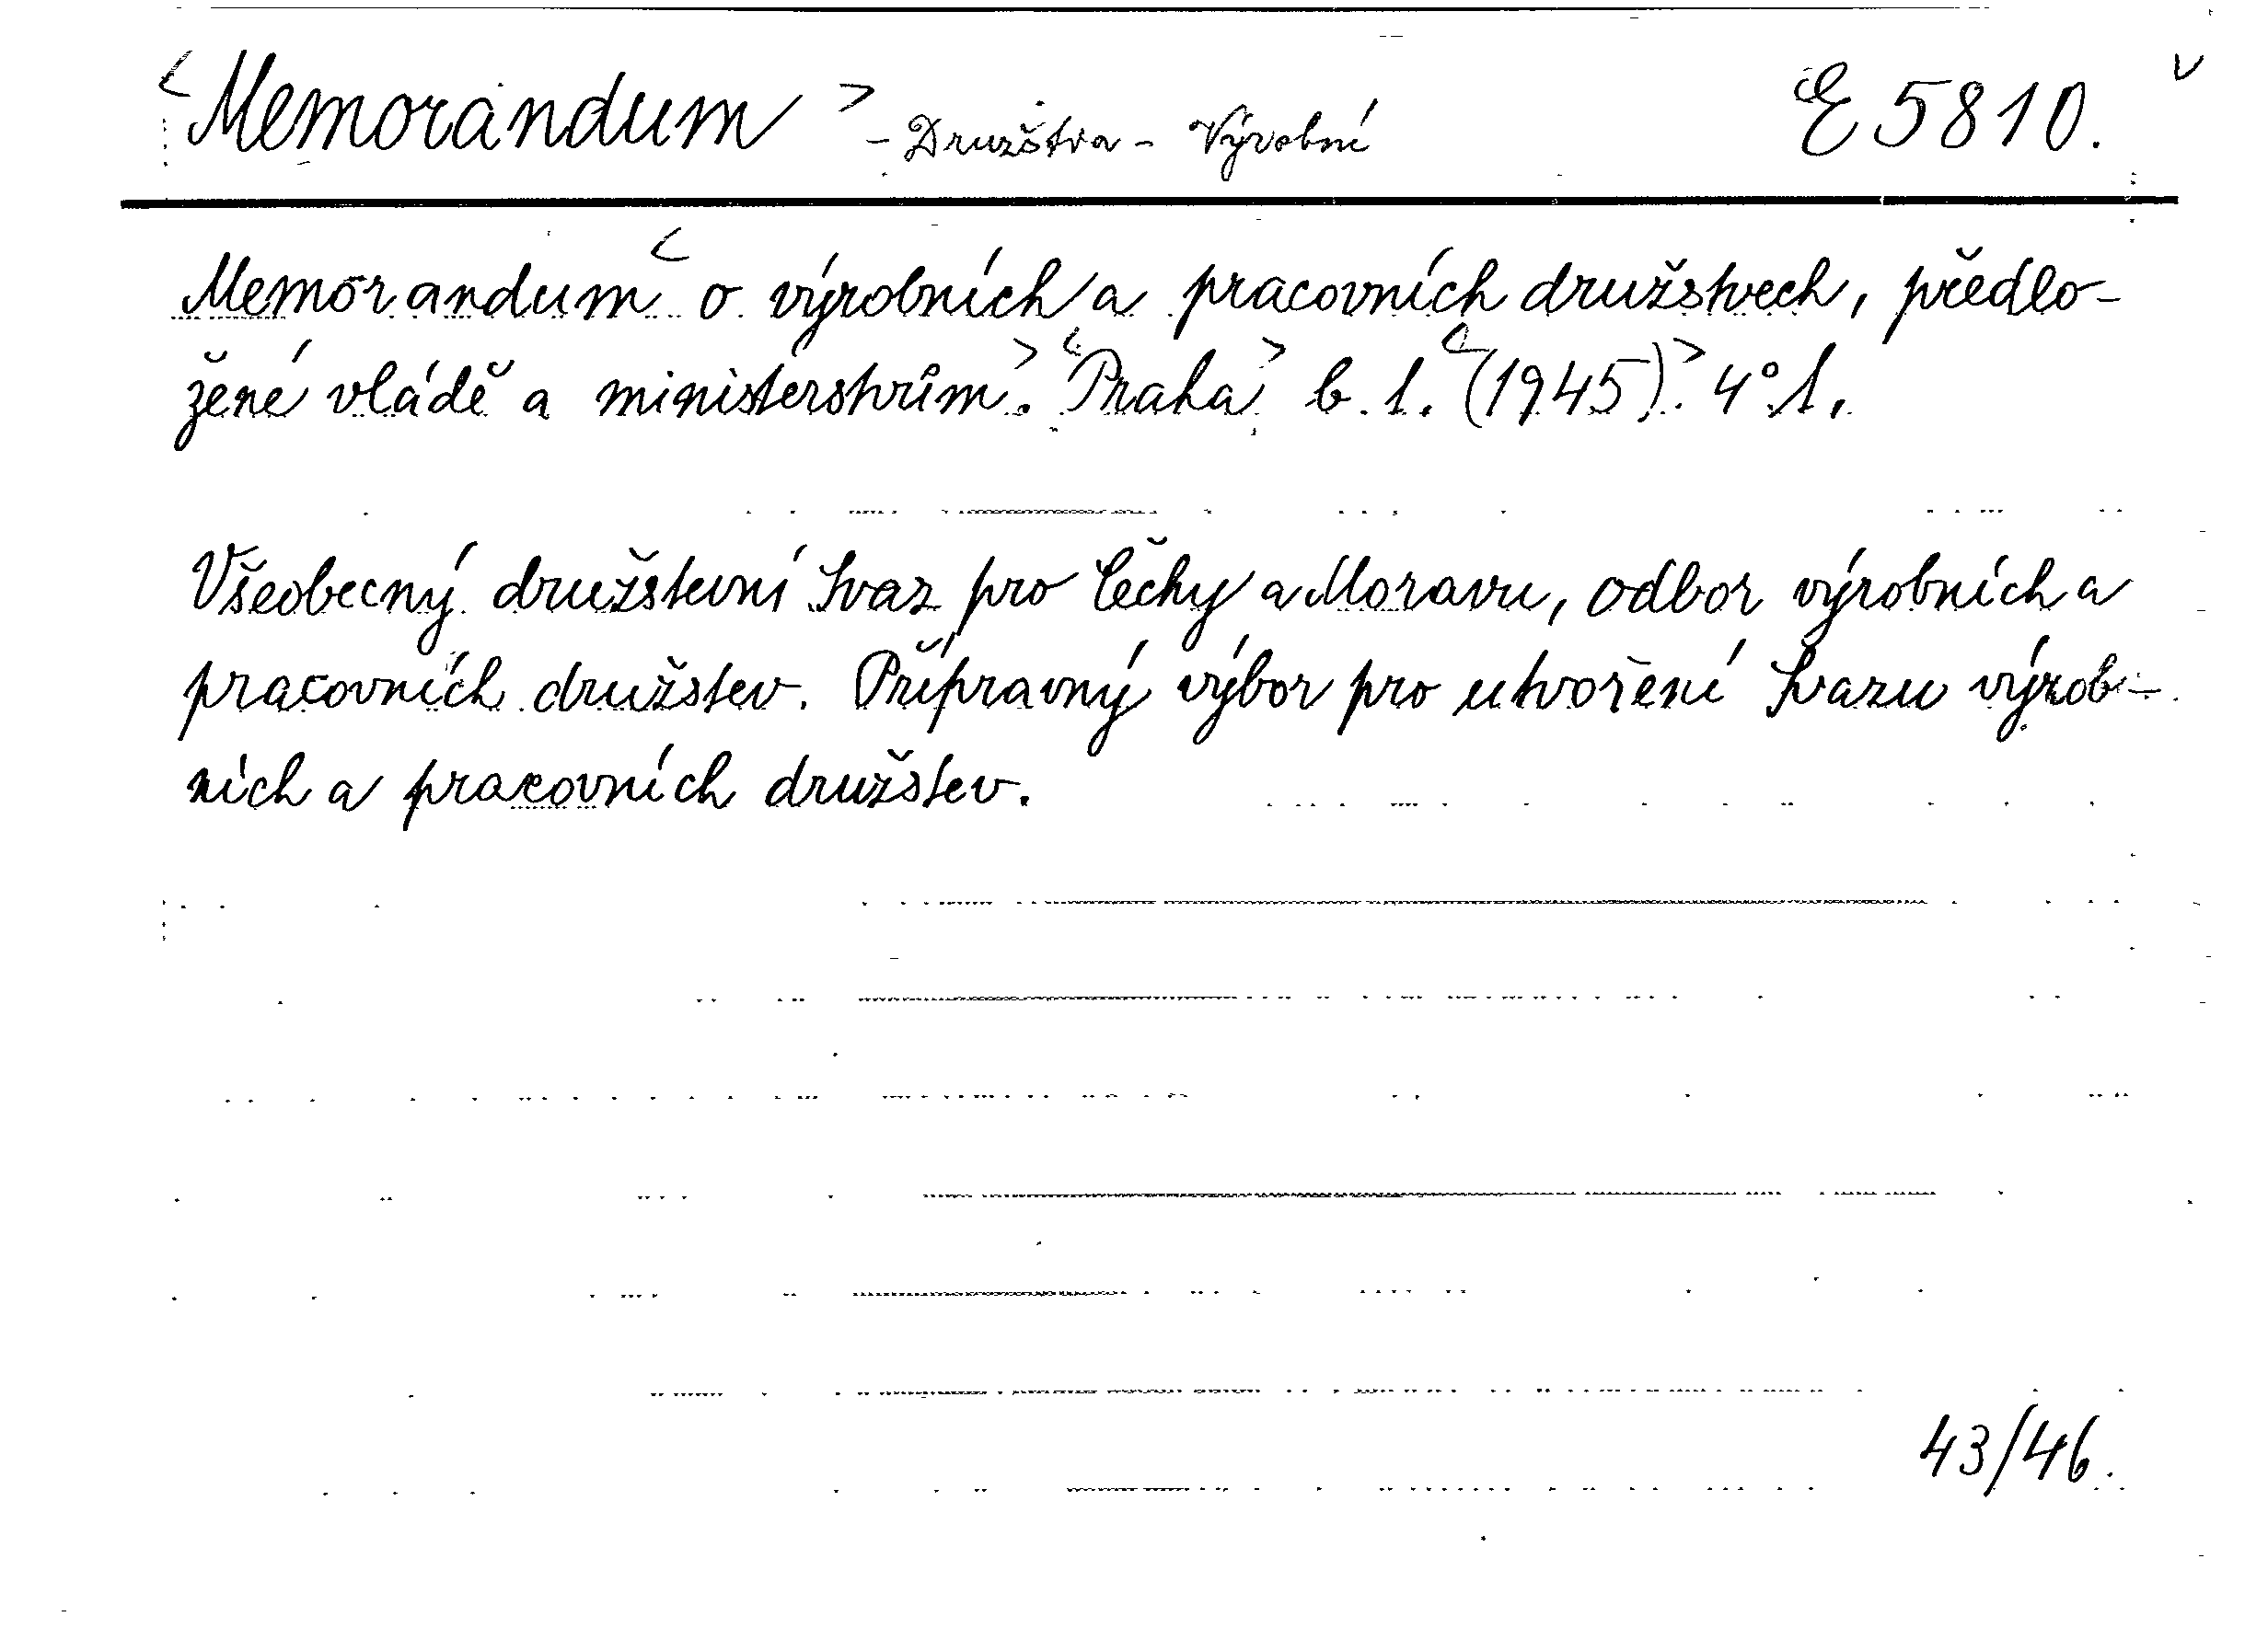 <Memorandum> - Družstva - Výrobní E 5810.
Memorandum< o výrobních a pracovních družstvech, předlo-
žené vládě a ministerstvům>. <Praha> b. l. <(1945)>. 4° 1.
Všeobecný družstevní Svaz pro Čechy a Moravu, odbor výrobních a
pracovních družstev. Přípravný výbor pro utvoření Svazu výrob-
ních a pracovních družstev.
43/46.